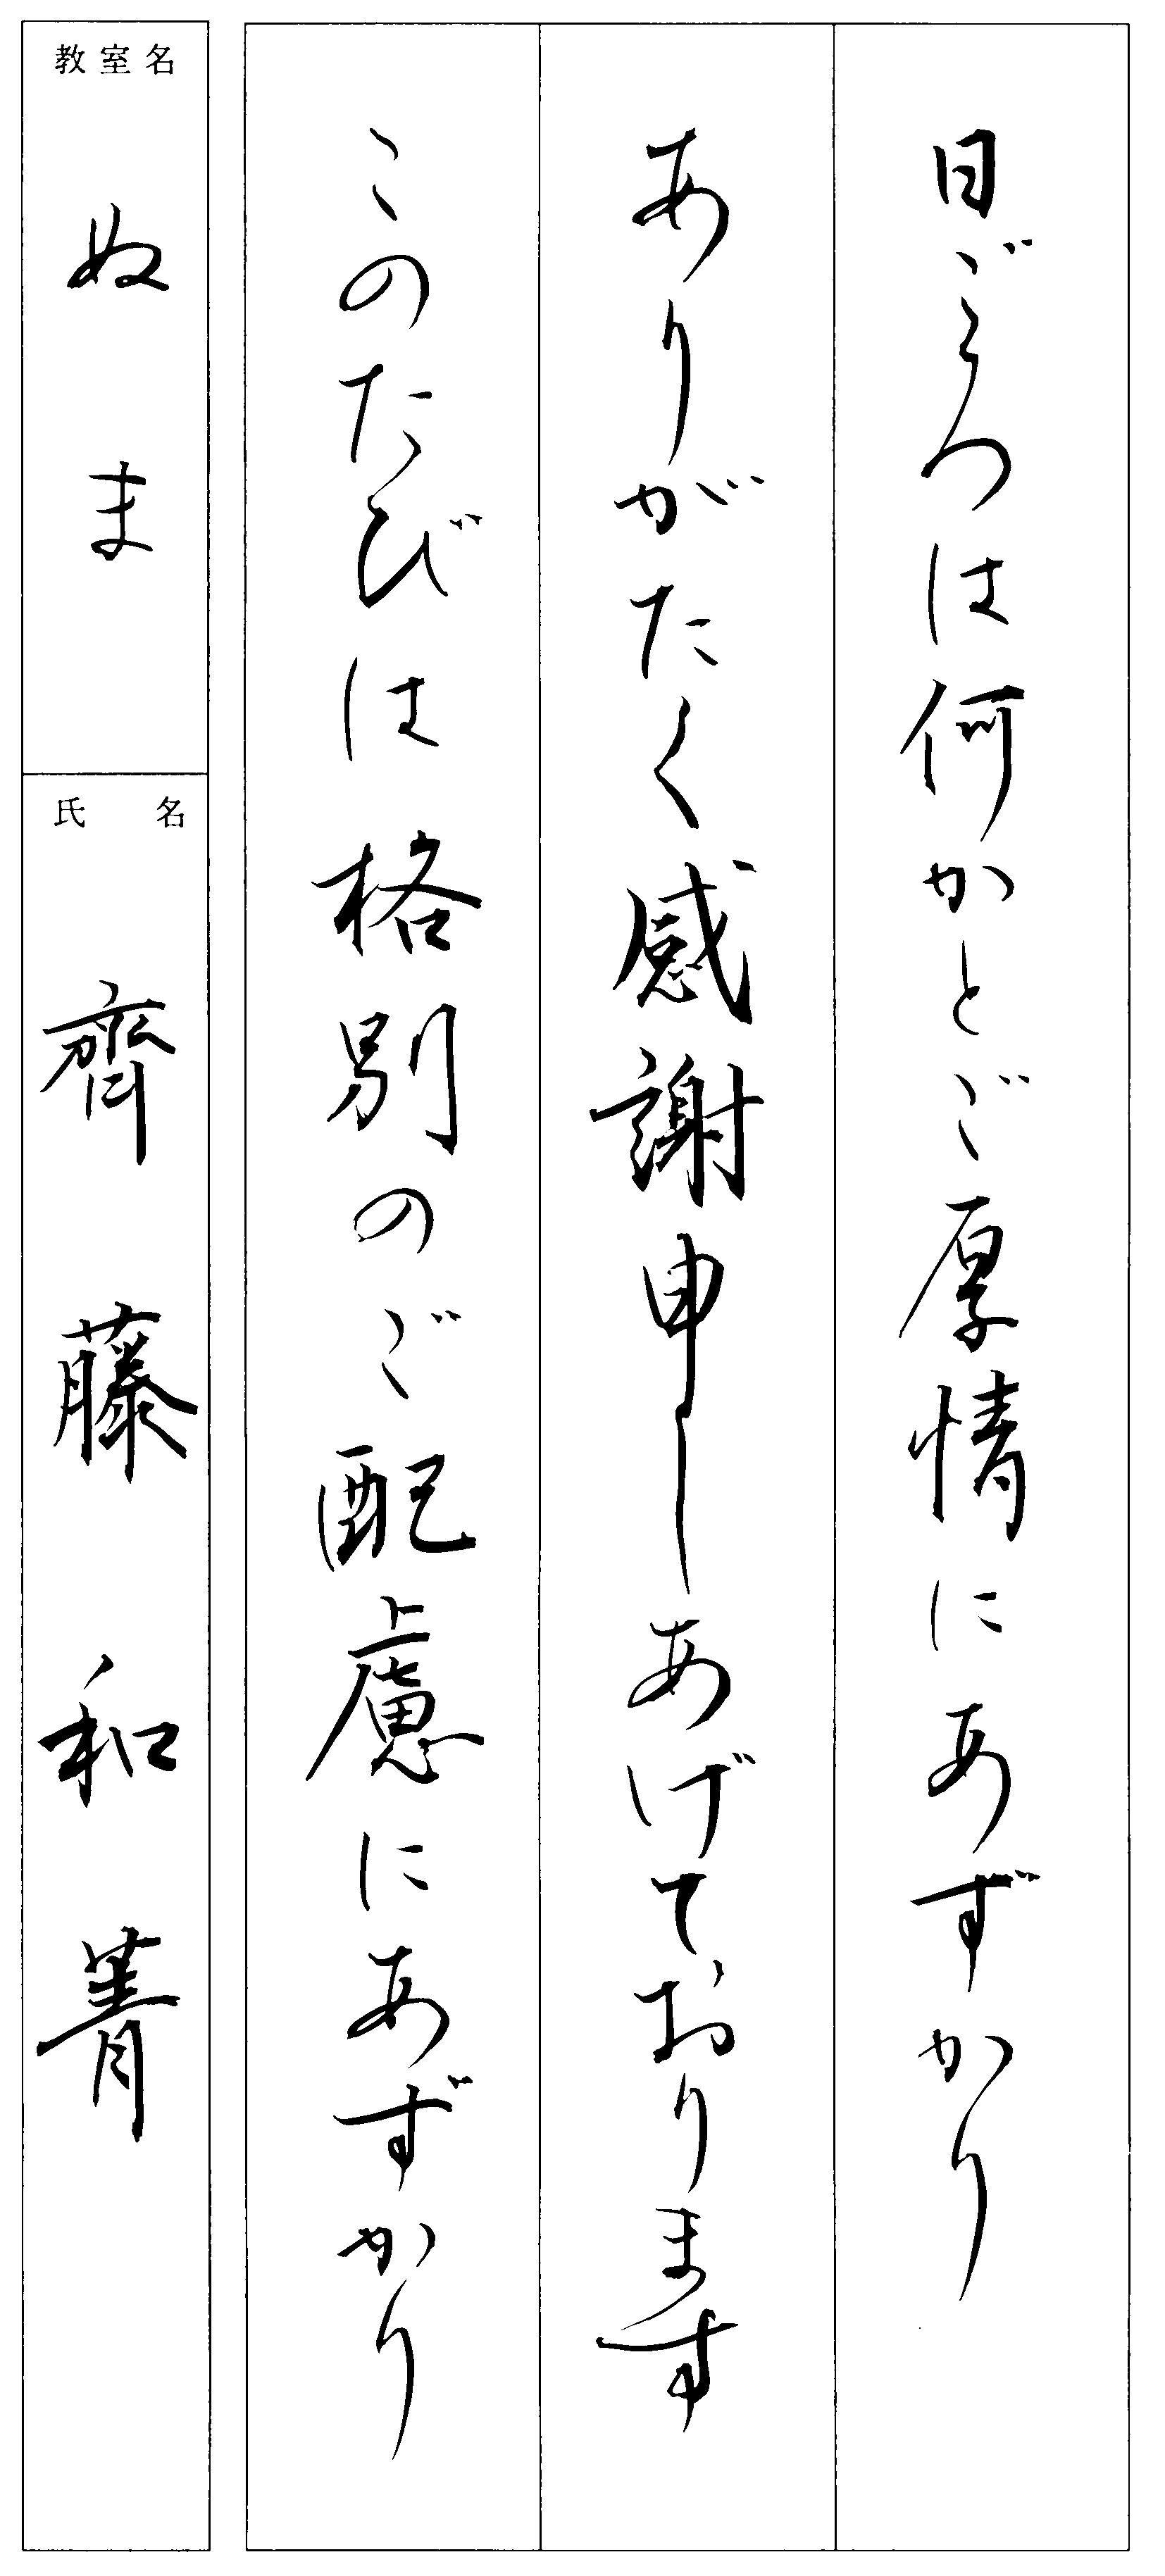 日ごろは何かとご厚情にあずかり
ありがたく感謝申しあげております
このたびは格別のご配慮にあずかり
教室名
ぬま
氏名
齊藤和菁